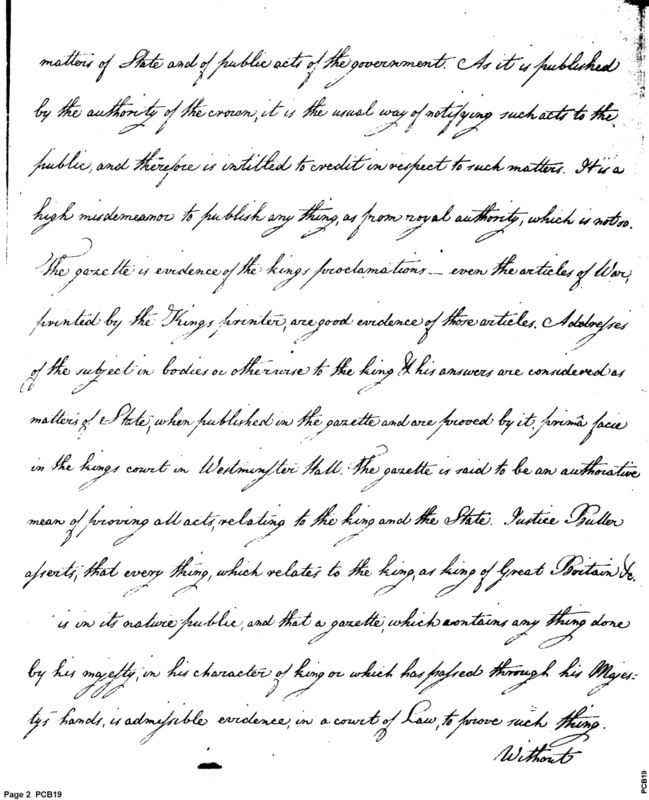 matters of State and of public acts of the government. As it is published
by the authority of the crown, it is the usual way of notifying such acts to the
public, and therefore is intitled to credit in respect to such matters. It is a
high misdemeanor to publish any thing, as from royal authority, which is not so.
The gazette is evidence of the kings proclamations — even the articles of War,
printed by the Kings printer, are good evidence of those articles. Addresses
of the subject in bodies or otherwise to the king & his answers are considered as
matters of State, when published in the gazette and are proved by it, primâ facie
in the kings court in Westminster Hall. The gazette is said to be an authorative
mean of proving all acts, relating to the king and the State. Justice Buller
asserts, that every thing, which relates to the king, as king of Great Britain &c.
is in its nature public, and that a gazette, which contains any thing done
by his majesty, in his character of king or which has passed through his Majes:
tys hands, is admissible evidence, in a court of Law, to prove such thing.
Without
Page 2 PCB19
PCB19